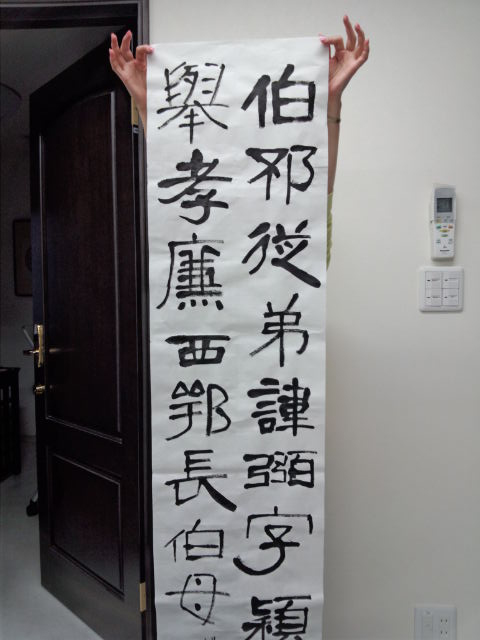 伯邳從弟諱弼字穎
舉孝廉西鄂長伯母